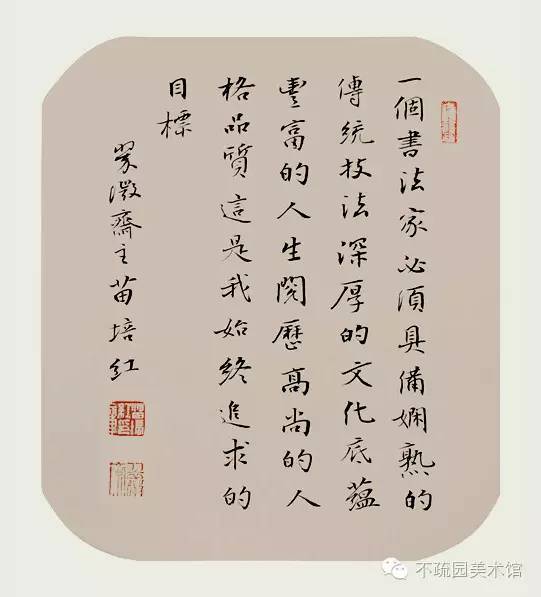 一個書法家必須具備嫻熟的
傳統技法深厚的文化底蘊
豐富的人生閱歷高尚的人
格品質這是我始終追求的
目標
澂齋主苗培红
不疏园美术馆